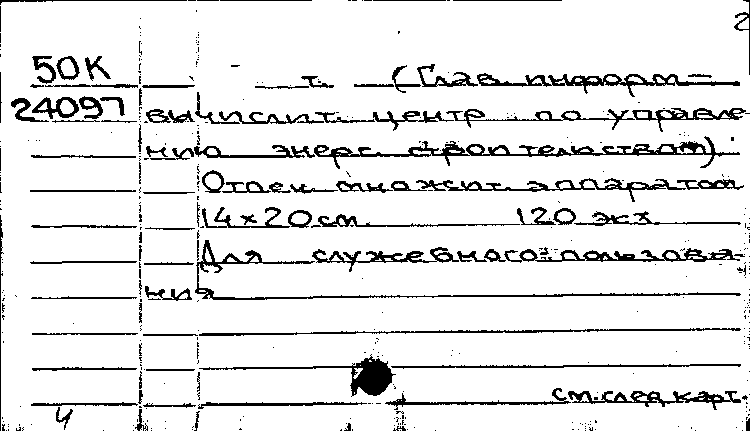 2
50К
— т. — (Глав. информ-
24097 вычислит. центр по управле
нию энерг. строительством).
Отпеч. множит. аппаратом
14×20 см. 120 экз.
Для служебного пользова-
ния
см. след. карт.
ч